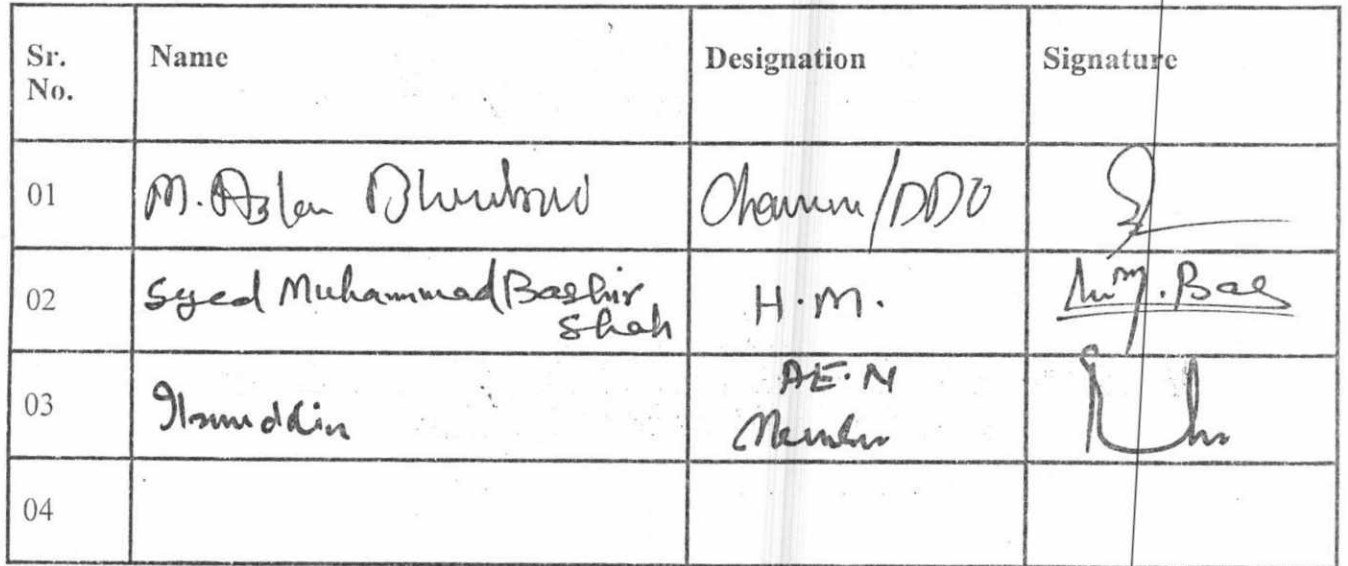 Sr. No. Name Designation Signature
01 M. Aslam Chairman/DDO
02 Syed Muhammad Bashir Shah H.M.
03 A.E.N
Member
04